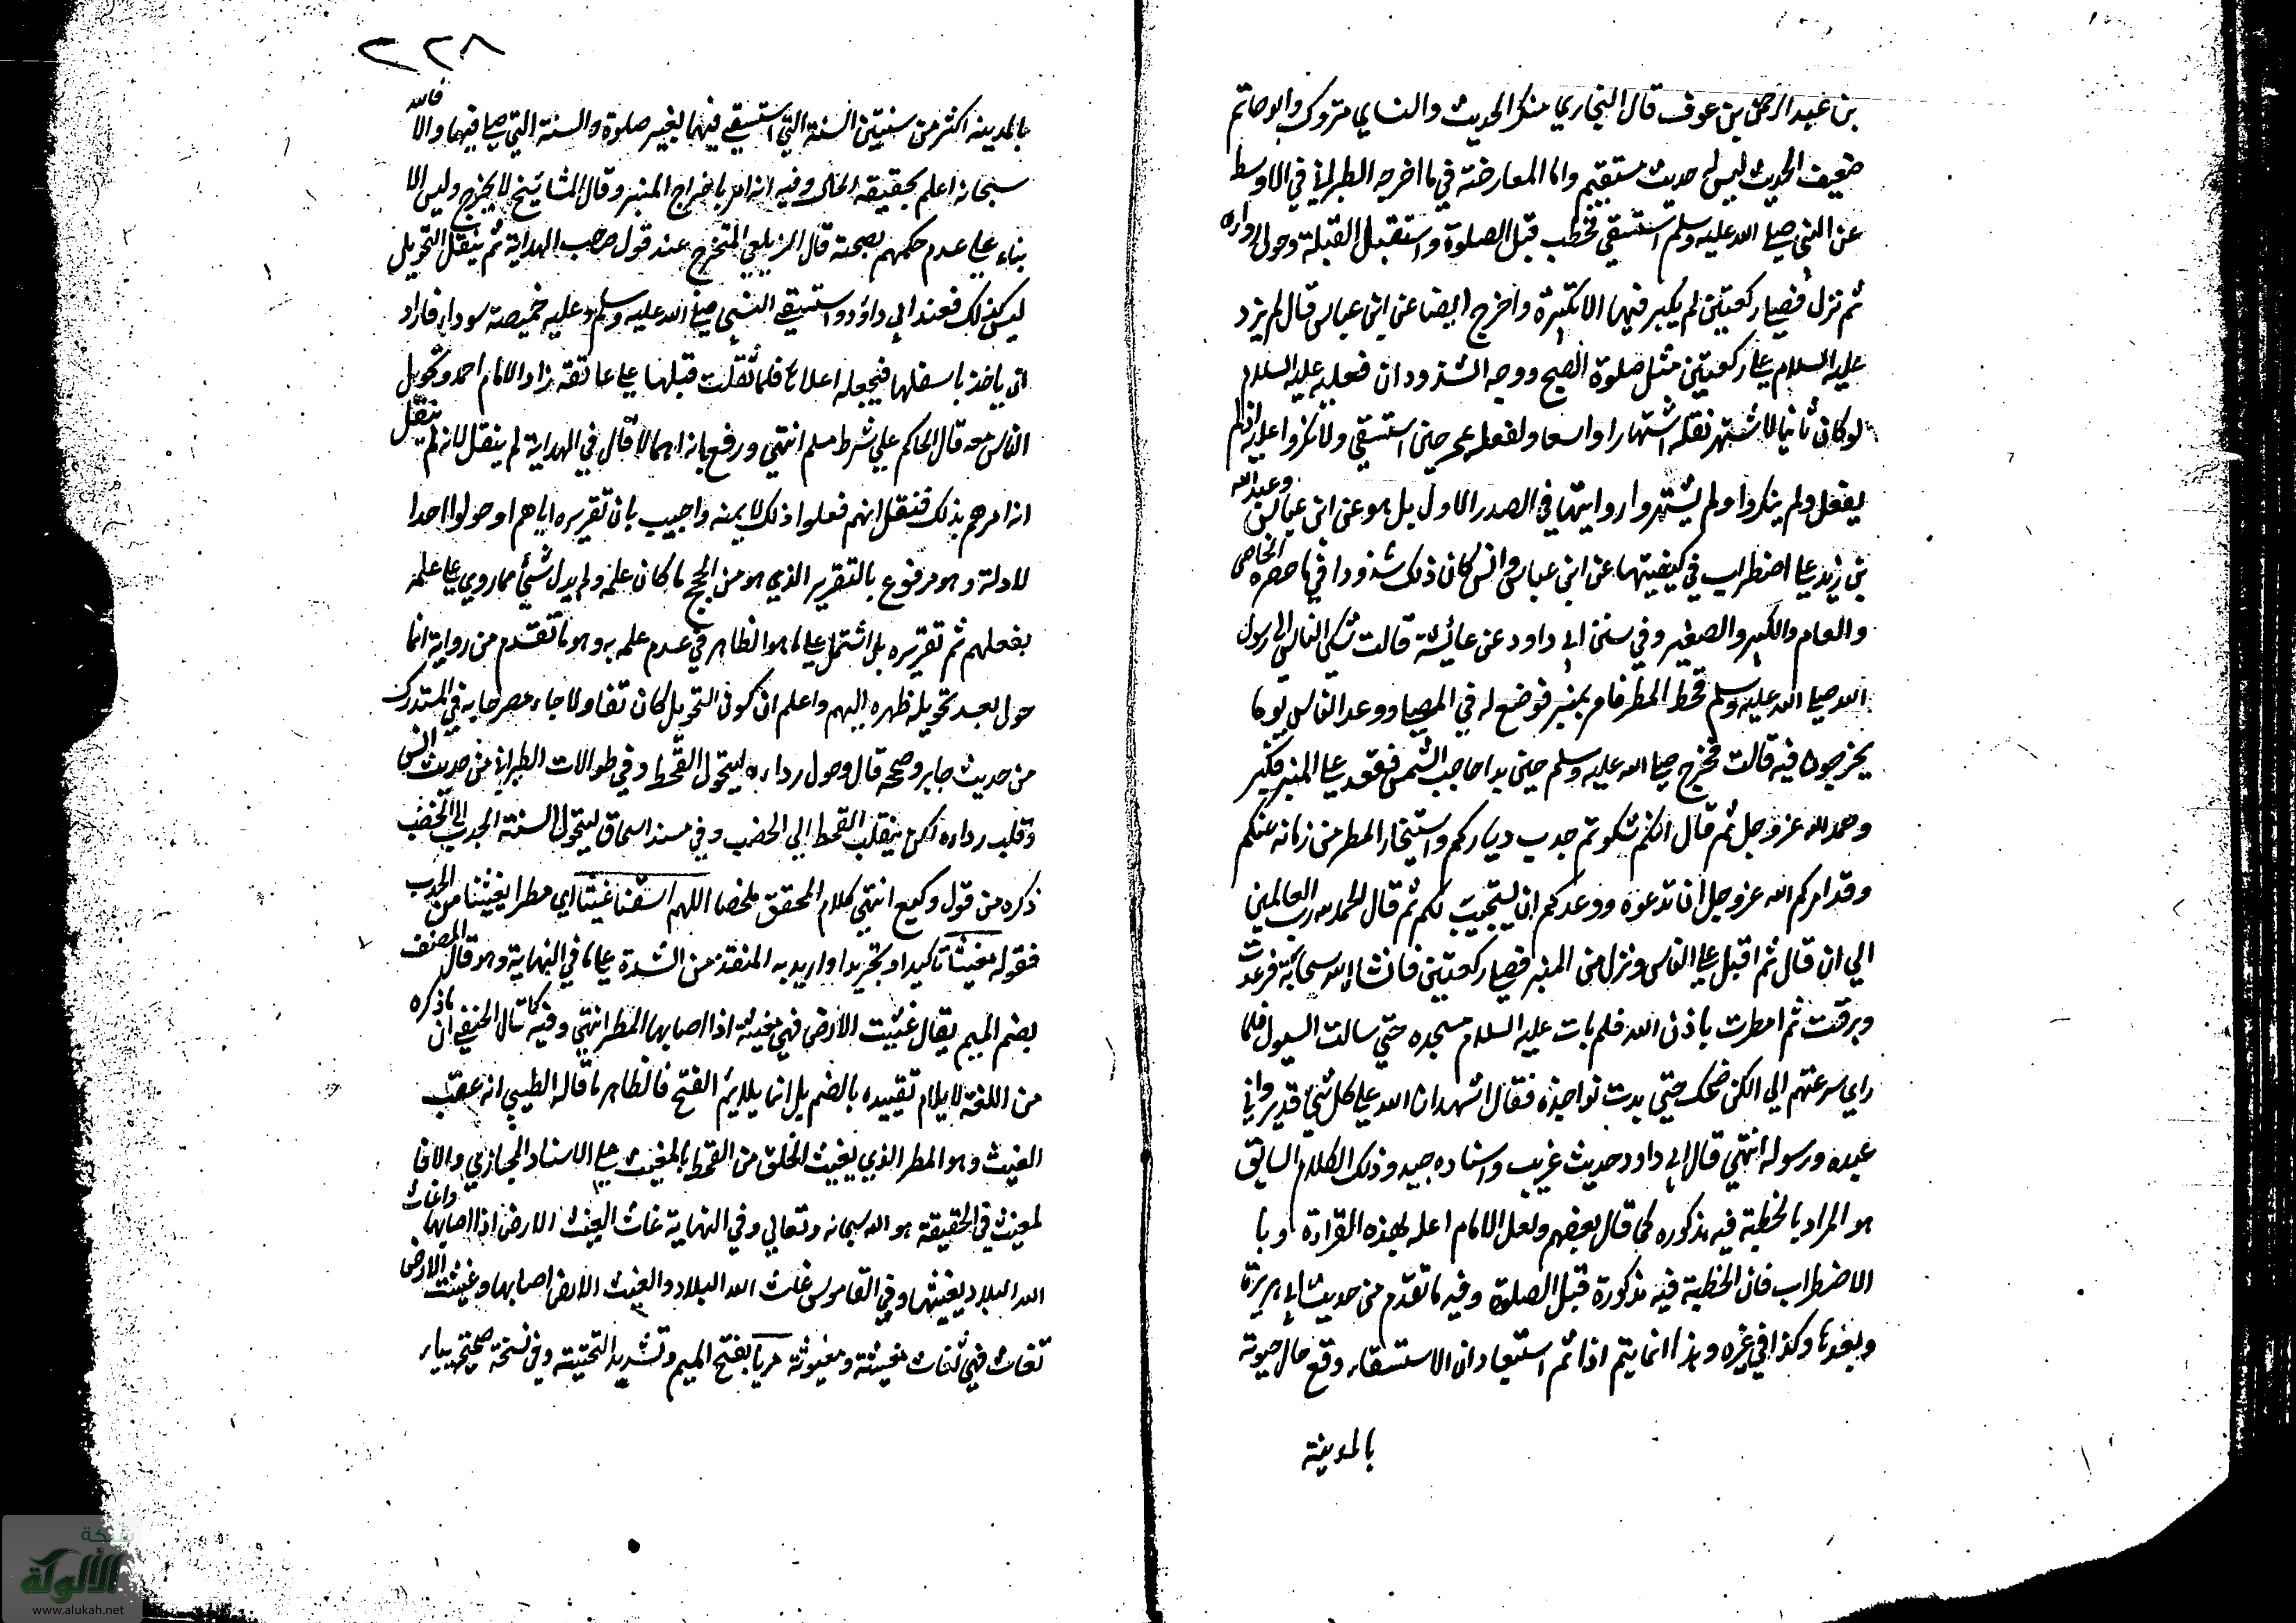 بن عبد الرحمن بن عوف قال البخاري منكر الحديث والنسائي متروك وابو حاتم
ضعيف الحديث ليس له حديث مستقيم واما المعارضة في ما اخرجه الطبراني في الاوسط
عن النبي صلى الله عليه وسلم استسقى فخطب قبل الصلوة واستقبل القبلة وحول رداره
ثم نزل فصلى ركعتين لم يكبر فيها الا تكبيرة واخرج ايضا عن ابن عباس قال لم يزد
عليه السلام على ركعتين مثل صلوة الصبح ووجه الشذوذ ان فعله عليه السلام
لو كان ثانيا لاشتهر نقله اشتهارا واسعا ولفعله عمر حين استسقى ولانكروا عليه اذ لم
يفعل ولم ينكروا ولم يشتهروا روايتها في الصدر الاول بل هو عن ابن عباس وعبد الله
بن زيد على اضطراب في كيفيتها عن ابن عباس وانس كان ذلك شذوذا في ما حضره الخاص
والعام والكبير والصغير وفي سنن ابي داود عن عائشة قالت شكى الناس الى رسول
الله صلى الله عليه وسلم قحط المطر فامر بمنبر فوضع له في المصلى ووعد الناس يوما
يخرجون فيه قالت فخرج صلى الله عليه وسلم حين بدا حاجب الشمس فقعد على المنبر فكبر
وحمد الله عز وجل ثم قال انكم شكوتم جدب دياركم واستيخار المطر من زمانه عنكم
وقد امركم الله عز وجل ان تدعوه ووعدكم ان يستجيب لكم ثم قال الحمد لله رب العالمين
الي ان قال ثم اقبل على الناس ونزل من المنبر فصلى ركعتين فانشاء الله سحابة فرعدت
وبرقت ثم امطرت باذن الله فلم يات عليه السلام مسجده حتي سالت السيول فلما
راي سرعتهم الي الكن ضحك حتي بدت نواجذه فقال اشهد ان الله على كل شيء قدير واني
عبده ورسوله انتهي قال ابي داود حديث غريب واسناده جيد وذلك الكلام السابق
هو المراد بالخطبة فيه مذكوره كما قال بعضهم ولعل الامام اعله بهذه القراءة او با
الاضطراب فان الخطبة فيه مذكورة قبل الصلوة وفيه ما تقدم من حديث ابي هريرة
وبعدها وكذا في غيره وهذا انما يتم اذا تم استبعاد ان الاستسقاء وقع حال حيوته
بالمدينة
٢٢٨
بالمدينه اكثر من سنتين السنة التي استسقى فيها بغير صلوة والسنة التي صلى فيها والا فالله
سبحانه اعلم بحقيقه الحال وفيه انه امر باخراج المنبر وقال المشائيخ لا يخرج وليس الا
بناء على عدم حكمهم بصحته قال الزيلعي المخرج عند قول صاحب الهداية ثم ينقل التحويل
ليس كذلك فعند ابي داؤد استسقى النبي صلى الله عليه وسلم وعليه خميصة سوداء فاراد
ان ياخذ باسفلها فيجعله اعلاها فلما ثقلت قلبها على عاتقه زاد الامام احمد وتحويل
الناس معه قال الحاكم على شرط مسلم انتهي ورفع بانه اهمالا قال في الهداية لم ينقل لانه لم ينقل
انه امرهم بذلك فنقل انهم فعلوا ذلك لا يمنه واجيب بان تقريره اياهم او حولوا احدا
لادلة وهو مرفوع بالتقرير الذي هو من الحجج ما كان علمه ولم يدل شيء مما روي على علمه
بفعلهم ثم تقريره بل اشتمل على ما هو الظاهر في عدم علمه به وهو ما تقدم من رواية انما
حول بعد تحويله ظهره اليهم واعلم ان كون التحويل كان تفاولا جاء مصرحا به في المستدرك
من حديث جابر وصححه قال وحول رداءه ليتحول القحط وفي طوالات الطبراني من حديث انس
وقلب رداءه لكي ينقلب القحط الي الخصب وفي مسند اسحاق ليتحول السنة الجدب الى الخصب
ذكره من قول وكيع انتهي كلام المحقق ملخصا اللهم اسقنا غيثا اي مطرا يغيثنا من الجدب
فقوله مغيثا تاكيد او تجريد او اريد به المنقذ من الشدة على ما في النهاية وهو قال المصنف
بضم الميم يقال غيثت الارض فهي مغيثة اذا اصابها المطر انتهي وفيه كما قال الحنفي ان ما ذكره
من اللغة لا يلام تقييده بالضم بل انما يلايم الفتح فالظاهر ما قاله الطيبي انه عقب
الغيث وهو المطر الذي يغيث الخلق من القحط بالمغيث على الاسناد المجازي والافا
لمغيث في الحقيقة هو الله سبحانه وتعالى وفي النهاية غاث الغيث الارض اذا اصابها واغاث
الله البلاد يغيثها وفي القاموس غاث الله البلاد والغيث الارض اصابها وغيثت الارض
تغاث فهي تغاث مغيثة ومغيوثة مريا بفتح الميم وتشديد التحتية وفي نسخة صحيحة بياء
شبكة
الألوكة
www.alukah.net